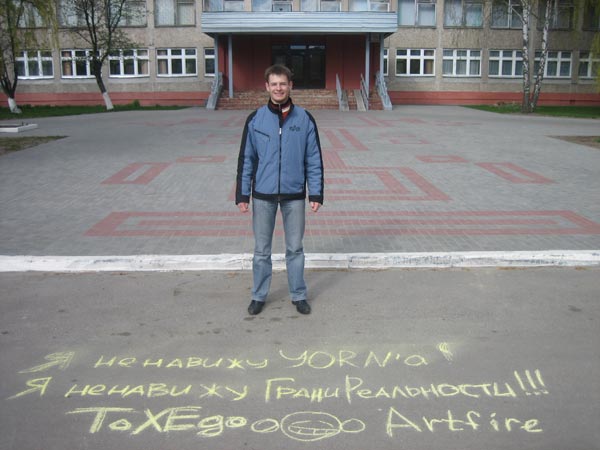 Я ненавижу YORN'a!
Я ненавижу ГраниРеальности!!!
ToXEgo Artfire